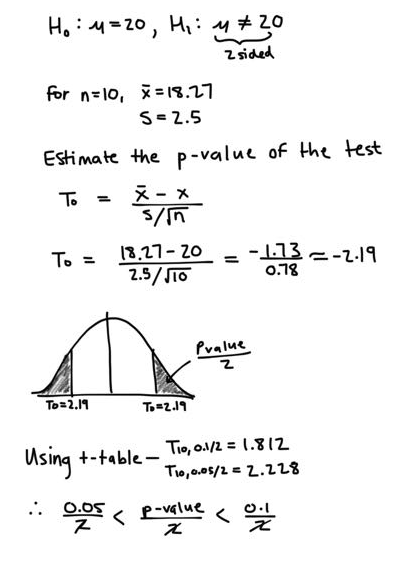 H₀ : μ = 20 , H₁ : μ ≠ 20
2 sided
For n=10, x̄ = 18.27
S = 2.5
Estimate the p-value of the test
T₀ = x̄ - x / s/√n
T₀ = 18.27 - 20 / 2.5/√10 = -1.73 / 0.78 ≃ -2.19
Pvalue / 2
T₀=2.19 T₀=2.19
Using t-table – T₁₀, 0.1/2 = 1.812
T₁₀, 0.05/2 = 2.228
∴ 0.05/2 < p-value/2 < 0.1/2